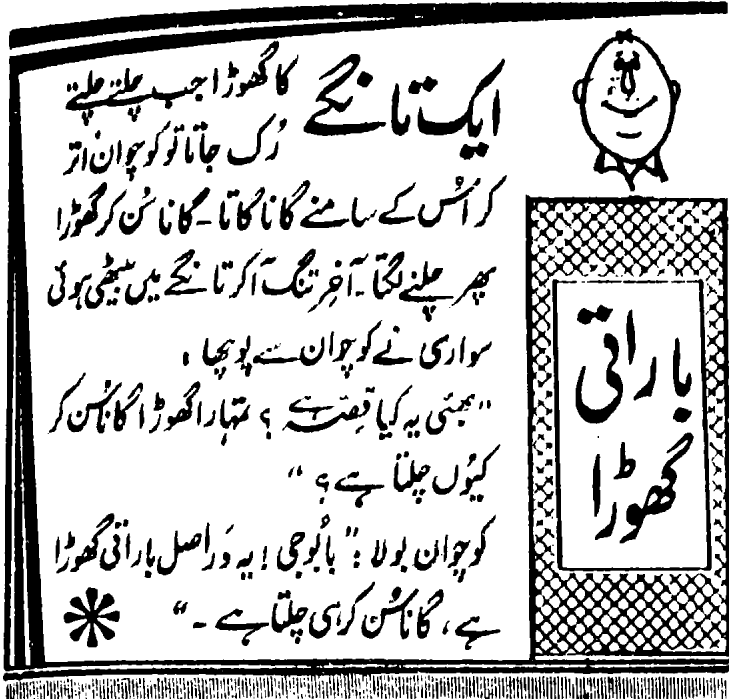 باراتی
گھوڑا
ایک تانگے کا گھوڑا جب چلتے چلتے
رُک جاتا تو کوچوان اتر
کر اُس کے سامنے گانا گاتا۔ گانا سُن کر گھوڑا
پھر چلنے لگتا۔ آخر تنگ آ کر تانگے میں بیٹھی ہوئی
سواری نے کوچوان سے پوچھا:
"بھئی یہ کیا قِصّہ ہے؟ تمہارا گھوڑا گانا سُن کر
کیوں چلتا ہے؟"
کوچوان بولا: "بابُوجی! یہ دَراصل باراتی گھوڑا
ہے، گانا سُن کر ہی چلتا ہے۔"